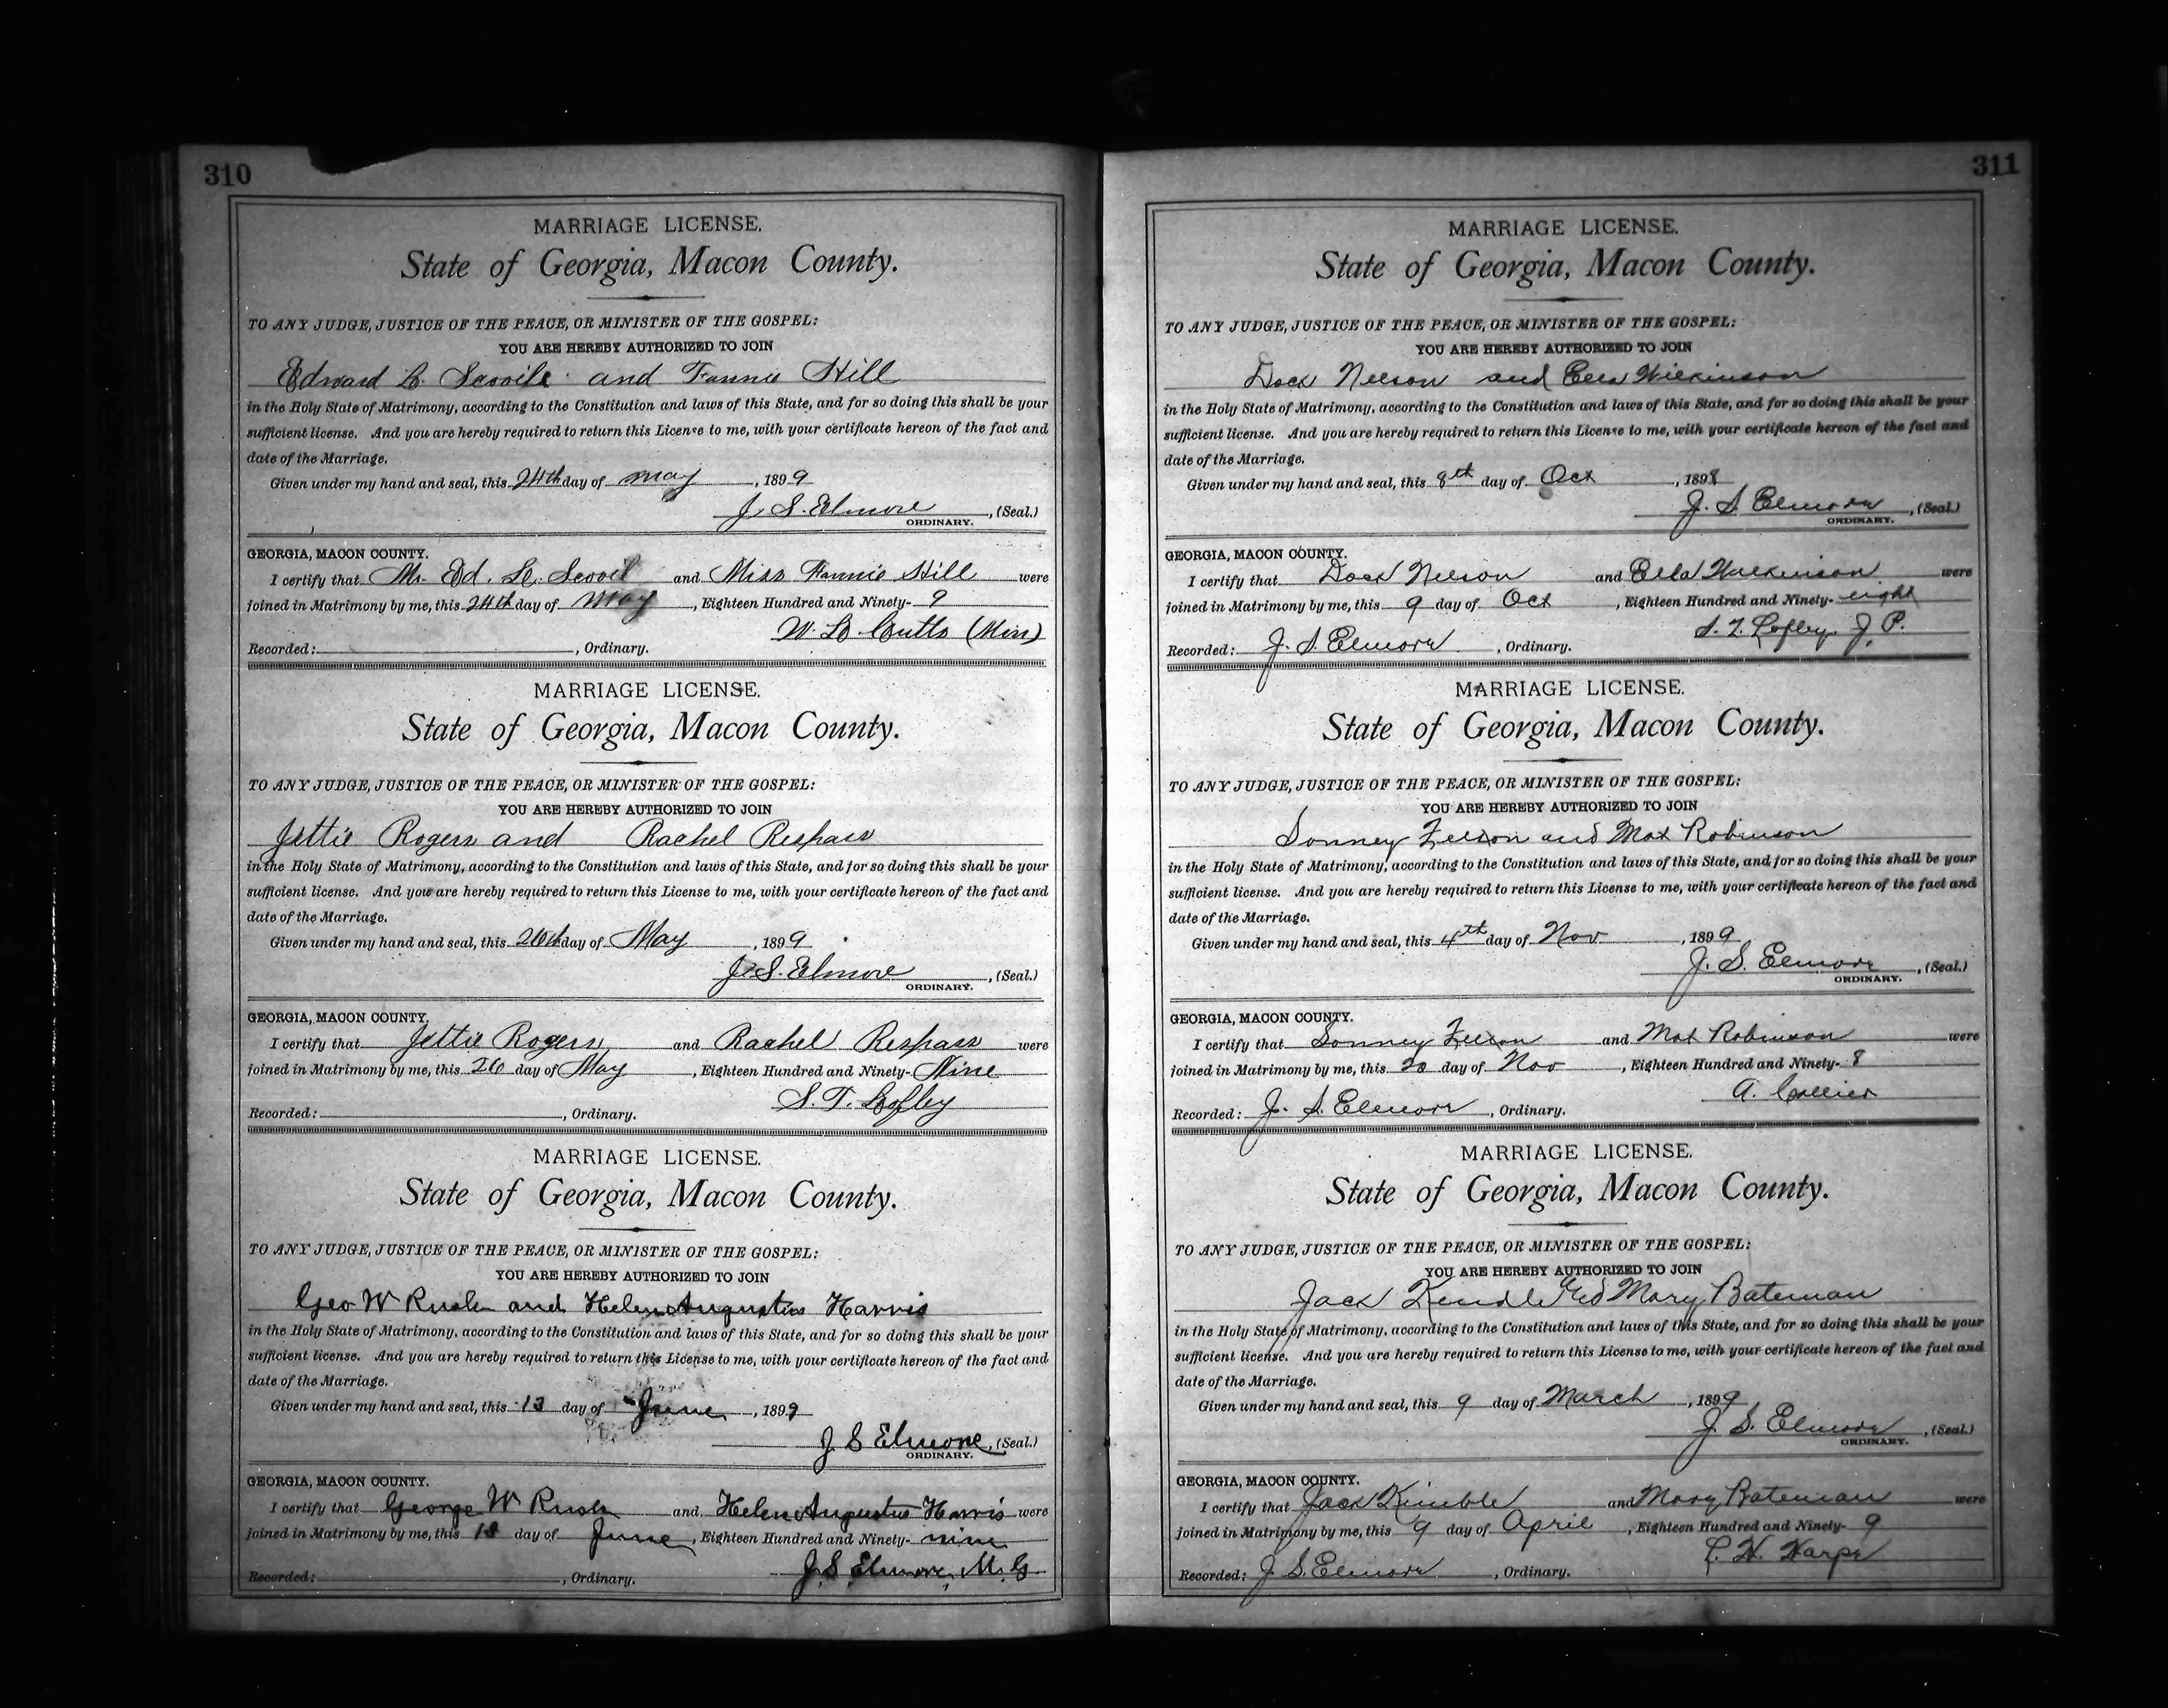 310
MARRIAGE LICENSE.
State of Georgia, Macon County.
TO ANY JUDGE, JUSTICE OF THE PEACE, OR MINISTER OF THE GOSPEL:
YOU ARE HEREBY AUTHORIZED TO JOIN
Edward L. Scovile and Fannie Hill
in the Holy State of Matrimony, according to the Constitution and laws of this State, and for so doing this shall be your
sufficient license. And you are hereby required to return this License to me, with your certificate hereon of the fact and
date of the Marriage.
Given under my hand and seal, this 24th day of May, 1899
J. S. Elmore, (Seal.)
ORDINARY.
GEORGIA, MACON COUNTY.
I certify that Mr. Ed. L. Scovil and Miss Fannie Hill were
joined in Matrimony by me, this 24th day of May, Eighteen Hundred and Ninety- 9
W. L. Cutts (Min)
Recorded: , Ordinary.
MARRIAGE LICENSE.
State of Georgia, Macon County.
TO ANY JUDGE, JUSTICE OF THE PEACE, OR MINISTER OF THE GOSPEL:
YOU ARE HEREBY AUTHORIZED TO JOIN
Jettie Rogers and Rachel Respass
in the Holy State of Matrimony, according to the Constitution and laws of this State, and for so doing this shall be your
sufficient license. And you are hereby required to return this License to me, with your certificate hereon of the fact and
date of the Marriage.
Given under my hand and seal, this 26th day of May, 1899
J. S. Elmore, (Seal.)
ORDINARY.
GEORGIA, MACON COUNTY.
I certify that Jettie Rogers and Rachel Respass were
joined in Matrimony by me, this 26 day of May, Eighteen Hundred and Ninety- Nine
S. T. Lofley
Recorded: , Ordinary.
MARRIAGE LICENSE.
State of Georgia, Macon County.
TO ANY JUDGE, JUSTICE OF THE PEACE, OR MINISTER OF THE GOSPEL:
YOU ARE HEREBY AUTHORIZED TO JOIN
Geo W Rush and Helen Augustus Harris
in the Holy State of Matrimony, according to the Constitution and laws of this State, and for so doing this shall be your
sufficient license. And you are hereby required to return this License to me, with your certificate hereon of the fact and
date of the Marriage.
Given under my hand and seal, this 13 day of June, 1899
J S Elmore, (Seal.)
ORDINARY.
GEORGIA, MACON COUNTY.
I certify that George W Rush and Helen Augustus Harris were
joined in Matrimony by me, this day of June, Eighteen Hundred and Ninety- nine
J. S Elmore, M. G
Recorded: , Ordinary.
311
MARRIAGE LICENSE.
State of Georgia, Macon County.
TO ANY JUDGE, JUSTICE OF THE PEACE, OR MINISTER OF THE GOSPEL:
YOU ARE HEREBY AUTHORIZED TO JOIN
Dock Nelson and Ella Wilkinson
in the Holy State of Matrimony, according to the Constitution and laws of this State, and for so doing this shall be your
sufficient license. And you are hereby required to return this License to me, with your certificate hereon of the fact and
date of the Marriage.
Given under my hand and seal, this 8th day of Oct, 1898
J. S. Elmore, (Seal.)
ORDINARY.
GEORGIA, MACON COUNTY.
I certify that Dock Nelson and Ella Wilkinson were
joined in Matrimony by me, this 9 day of Oct, Eighteen Hundred and Ninety- eight
S. T. Lofley. J. P.
Recorded: J. S. Elmore, Ordinary.
MARRIAGE LICENSE.
State of Georgia, Macon County.
TO ANY JUDGE, JUSTICE OF THE PEACE, OR MINISTER OF THE GOSPEL:
YOU ARE HEREBY AUTHORIZED TO JOIN
Sonney and Mat Robinson
in the Holy State of Matrimony, according to the Constitution and laws of this State, and for so doing this shall be your
sufficient license. And you are hereby required to return this License to me, with your certificate hereon of the fact and
date of the Marriage.
Given under my hand and seal, this 4th day of Nov, 1899
J. S. Elmore, (Seal.)
ORDINARY.
GEORGIA, MACON COUNTY.
I certify that Sonney and Mat Robinson were
joined in Matrimony by me, this 20 day of Nov, Eighteen Hundred and Ninety- 8
A. Collier
Recorded: J. S. Elmore, Ordinary.
MARRIAGE LICENSE.
State of Georgia, Macon County.
TO ANY JUDGE, JUSTICE OF THE PEACE, OR MINISTER OF THE GOSPEL:
YOU ARE HEREBY AUTHORIZED TO JOIN
Jack Kendle and Mary Bateman
in the Holy State of Matrimony, according to the Constitution and laws of this State, and for so doing this shall be your
sufficient license. And you are hereby required to return this License to me, with your certificate hereon of the fact and
date of the Marriage.
Given under my hand and seal, this 9 day of March, 1899
J. S. Elmore, (Seal.)
ORDINARY.
GEORGIA, MACON COUNTY.
I certify that Jack Kimble and Mary Bateman were
joined in Matrimony by me, this 9 day of April, Eighteen Hundred and Ninety- 9
L. W. Harpe
Recorded: J. S. Elmore, Ordinary.